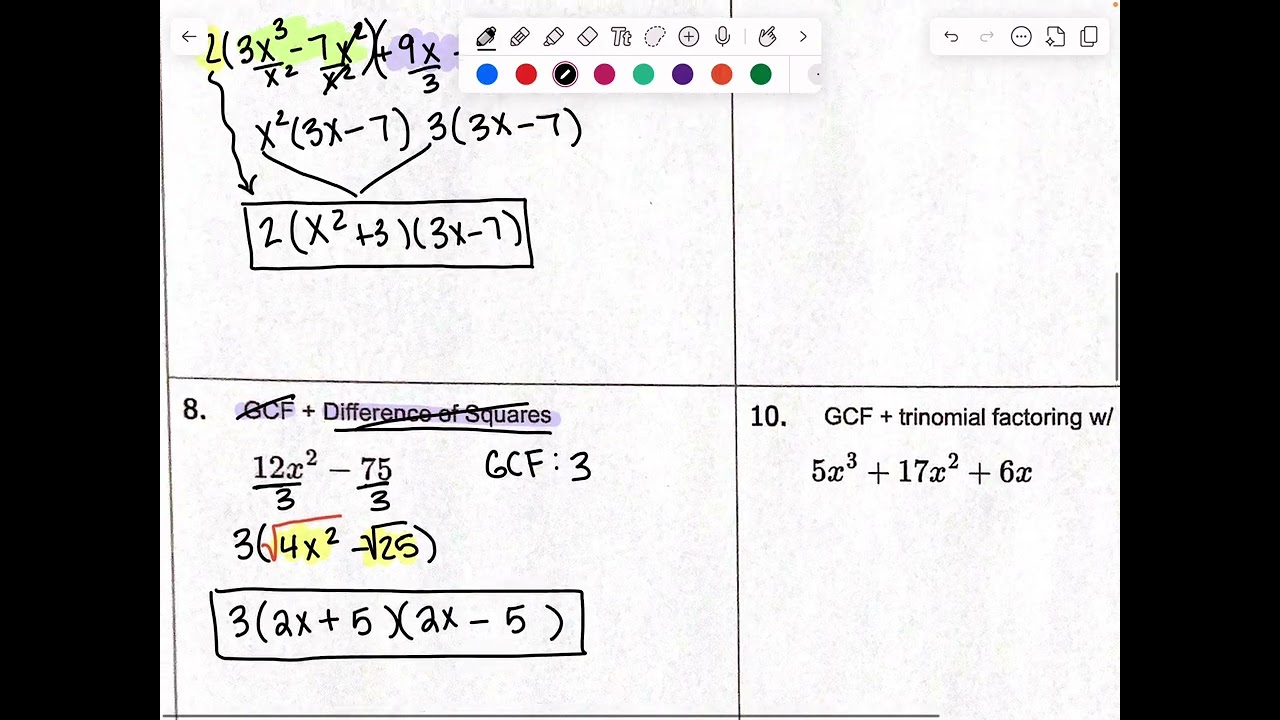 2(3x³ - 7x²)(+ 9x -
x² x² 3
x²(3x - 7) 3(3x - 7)
2(x² + 3)(3x - 7)
8. GCF + Difference of Squares
12x² − 75 GCF : 3
3 3
3(√4x² - √25)
3(2x + 5)(2x - 5 )
10. GCF + trinomial factoring w/
5x³ + 17x² + 6x
Tt